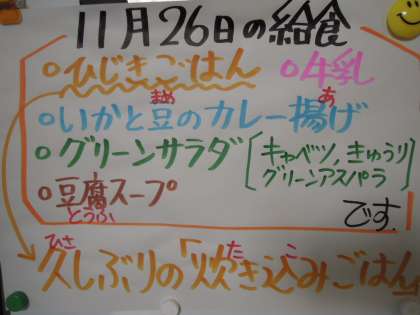 11月26日の給食
○ひじきごはん ○牛乳
まめ あ
○いかと豆のカレー揚げ
○グリーンサラダ［キャベツ,きゅうり
グリーンアスパラ］
○豆腐スープ
とうふ
です.
ひさ た こ
久しぶりの「炊き込みごはん」